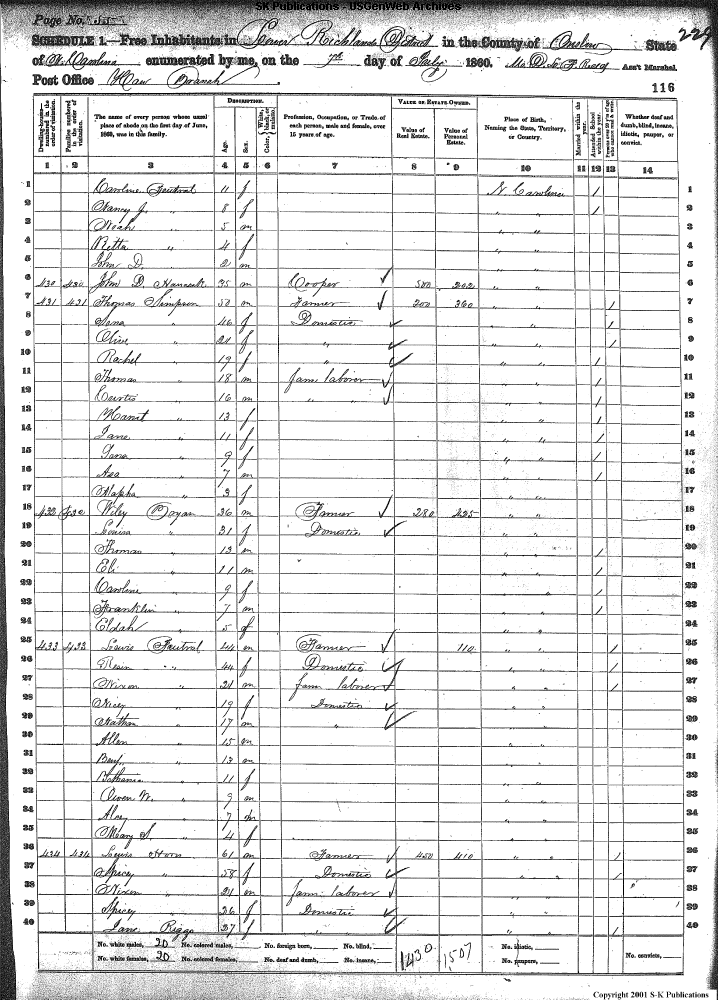 SK Publications - USGenWeb Archives
Page No. 55
229
SCHEDULE 1.—Free Inhabitants in Lower Richlands District in the County of Onslow State
of N. Carolina enumerated by me, on the 7th day of July 1860. Ass't Marshal.
Post Office Haw Branch
116
Dwelling-houses—numbered in the order of visitation.
Families numbered in the order of visitation.
The name of every person whose usual place of abode on the first day of June, 1860, was in this family.
DESCRIPTION.
Age.
Sex.
Color, White, black, or mulatto.
Profession, Occupation, or Trade of each person, male and female, over 15 years of age.
VALUE OF ESTATE OWNED.
Value of Real Estate.
Value of Personal Estate.
Place of Birth, Naming the State, Territory, or Country.
Married within the year.
Attended School within the year.
Persons over 20 y'rs of age who cannot read & write.
Whether deaf and dumb, blind, insane, idiotic, pauper, or convict.
1 2 3 4 5 6 7 8 9 10 11 12 13 14
1 Caroline 11 f N Carolina / 1
2 Nancy J. " 8 f " " / 2
3 Noah " 5 m " " 3
4 Retta " 4 f " " 4
5 John D. " 2 m " " 5
6 430 430 John D. 35 m Cooper 500 202 " " 6
7 431 431 Thomas Simpson 50 m Farmer 300 360 " " / 7
8 " 46 f Domestic " " / 8
9 Olive " 21 f " " " / 9
10 Rachel " 19 f " " " / 10
11 Thomas " 18 m farm laborer " " / 11
12 Curtis " 16 m " " " " / 12
13 " 13 f " " / 13
14 Jane " 11 f " " / 14
15 " 9 f " " / 15
16 Asa " 7 m " " / 16
17 " 3 f " " 17
18 432 432 Wiley 36 m Farmer 280 425 " " 18
19 Louisa " 31 f Domestic " " 19
20 Thomas " 13 m " " / 20
21 Eli " 11 m " " / 21
22 Caroline " 9 f " " / 22
23 Franklin " 7 m " " / 23
24 " 5 f " " 24
25 433 433 Lewis 44 m Farmer 110 " " / 25
26 " 44 f Domestic " " / 26
27 Nixon " 21 m farm laborer " " / 27
28 Nicey " 19 f Domestic " " 28
29 Nathan " 17 m " " " 29
30 Allen " 15 m " " 30
31 " 13 m " " 31
32 " 11 f " " 32
33 Owen W. " 9 m " " 33
34 " 7 " " 34
35 Meary S. " 4 f " " 35
36 434 434 Lewis Horn 61 m Farmer 450 410 " " / 36
37 Spicey " 58 f Domestic " " / 37
38 Nixon " 21 m farm laborer " " 38
39 Spicey " 26 f Domestic " " / 39
40 Jane Riggs 27 f " " " / 40
No. white males, 20 No. colored males, No. foreign born, No. blind, 1430 1507 No. idiotic, No. convicts,
No. white females, 20 No. colored females, No. deaf and dumb, No. insane, No. paupers,
Copyright 2001 S-K Publications